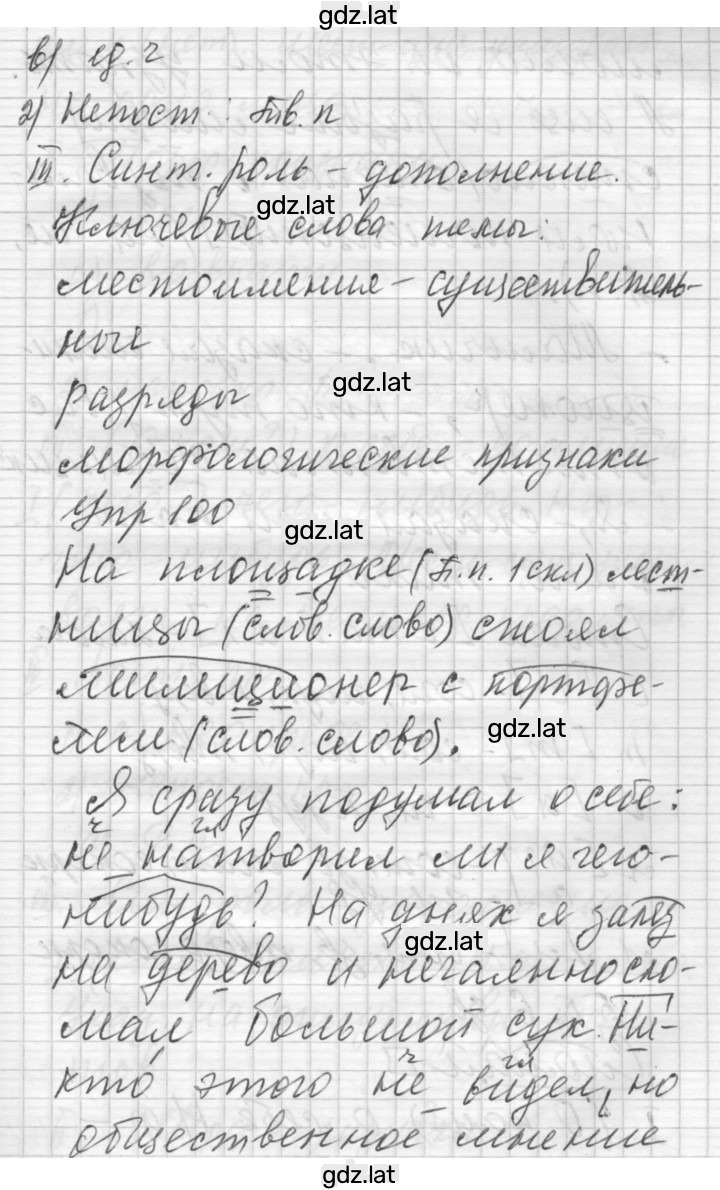 gdz.lat
в) ед.ч
2) Непост.: Тв.п
III. Синт. роль – дополнение.
gdz.lat
Ключевые слова темы:
местоимения – существитель-
ные
gdz.lat
разряды
морфологические признаки
Упр 100
gdz.lat
На площадке (П.п. 1 скл) лест-
ницы (слов. слово) стоял
милиционер с портфе-
gdz.lat
лем (слов. слово).
Я сразу подумал о себе:
ч гл
не натворил ли я чего-
нибудь? На днях я залез
gdz.lat
на дерево и нечаянно сло-
мал большой сук. Ни-
ч гл
кто этого не видел, но
общественное мнение
gdz.lat